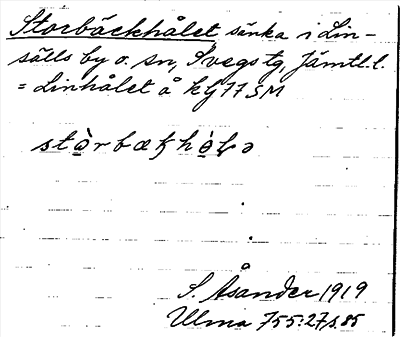 Storbäckhålet sänka i Lin-
sälls by o. sn, Svegs tg, Jämtl.l.
= Linhålet å kg 77 SM
S. Åsander 1919
Ulma 755:27 s. 85